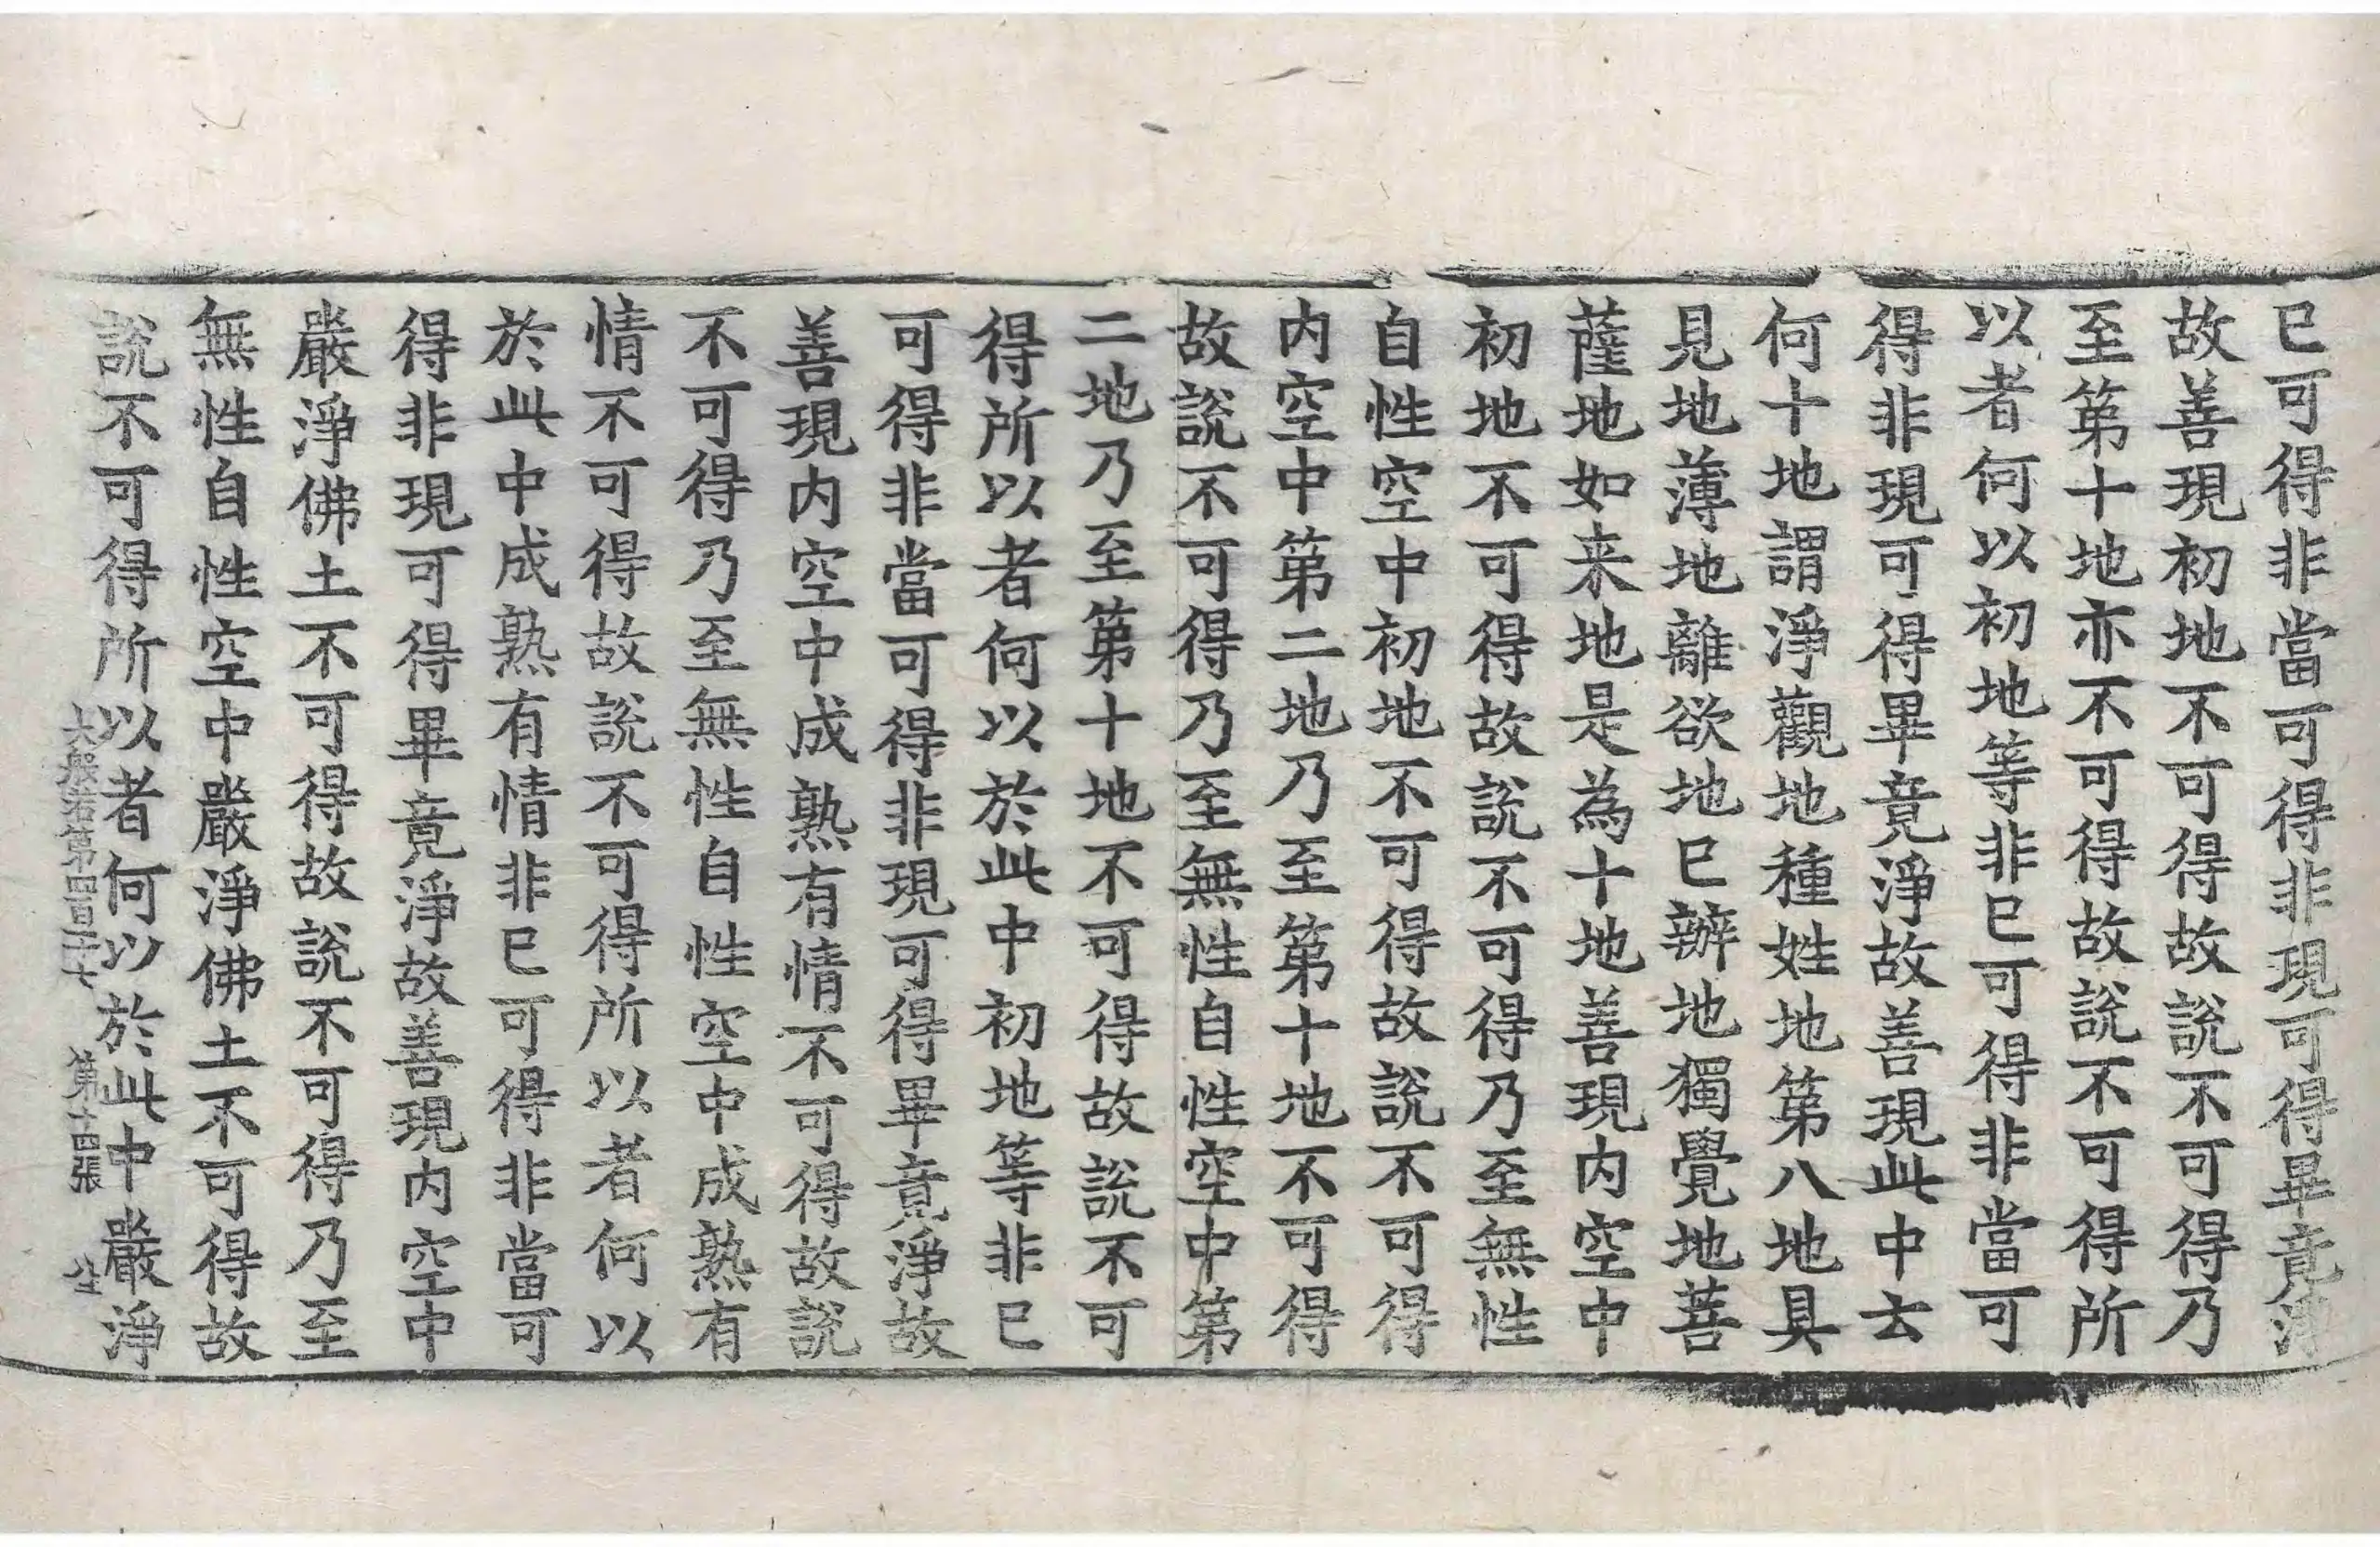 已可得非當可得非現可得畢竟淨
故善現初地不可得故說不可得乃
至第十地亦不可得故說不可得所
以者何以初地等非已可得非當可
得非現可得畢竟淨故善現此中云
何十地謂淨觀地種姓地第八地具
見地薄地離欲地已辦地獨覺地菩
薩地如来地是為十地善現内空中
初地不可得故說不可得乃至無性
自性空中初地不可得故說不可得
内空中第二地乃至第十地不可得
故說不可得乃至無性自性空中第
二地乃至第十地不可得故說不可
得所以者何以於此中初地等非已
可得非當可得非現可得畢竟淨故
善現内空中成熟有情不可得故說
不可得乃至無性自性空中成熟有
情不可得故說不可得所以者何以
於此中成熟有情非已可得非當可
得非現可得畢竟淨故善現内空中
嚴淨佛土不可得故說不可得乃至
無性自性空中嚴淨佛土不可得故
說不可得所以者何以於此中嚴淨
大般若第四百二十七 第十四張